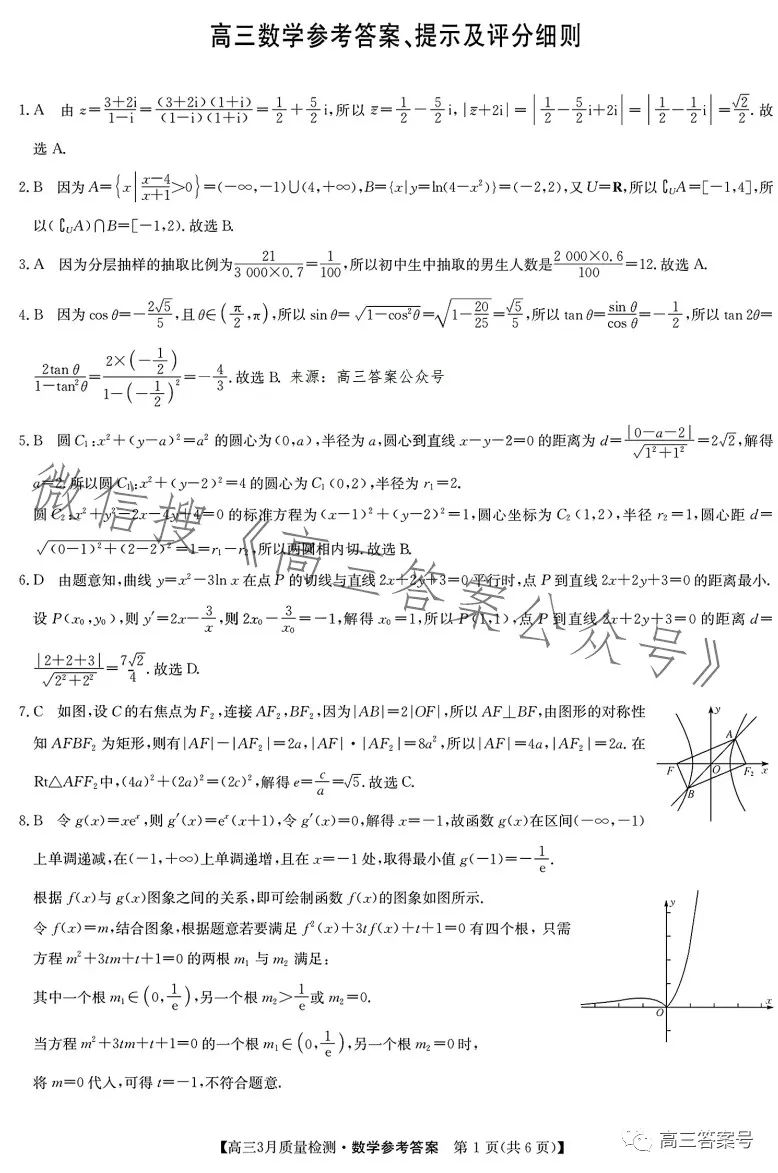 高三数学参考答案、提示及评分细则
1. A 由 z=\frac{3+2i}{1-i}=\frac{(3+2i)(1+i)}{(1-i)(1+i)}=\frac{1}{2}+\frac{5}{2}i,所以 \overline{z}=\frac{1}{2}-\frac{5}{2}i,|z+2i|=|\frac{1}{2}-\frac{5}{2}i+2i|=|\frac{1}{2}-\frac{1}{2}i|=\frac{\sqrt{2}}{2}.故
选 A.
2. B 因为 A={x|\frac{x-4}{x+1}>0}=(-∞,-1)∪(4,+∞),B={x|y=ln(4-x²)}=(-2,2),又 U=R,所以 ∁_UA=[-1,4],所
以(∁_UA)∩B=[-1,2).故选 B.
3. A 因为分层抽样的抽取比例为\frac{21}{3 000×0.7}=\frac{1}{100},所以初中生中抽取的男生人数是\frac{2 000×0.6}{100}=12.故选 A.
4. B 因为 cos θ=-\frac{2\sqrt{5}}{5},且 θ∈(\frac{π}{2},π),所以 sin θ=\sqrt{1-cos²θ}=\sqrt{1-\frac{20}{25}}=\frac{\sqrt{5}}{5},所以 tan θ=\frac{sin θ}{cos θ}=-\frac{1}{2},所以 tan 2θ=
\frac{2tan θ}{1-tan²θ}=\frac{2×(-\frac{1}{2})}{1-(-\frac{1}{2})²}=-\frac{4}{3}.故选 B. 来源：高三答案公众号
5. B 圆 C₁:x²+(y-a)²=a² 的圆心为(0,a),半径为 a,圆心到直线 x-y-2=0 的距离为 d=\frac{|0-a-2|}{\sqrt{1²+1²}}=2\sqrt{2},解得
a=2.所以圆 C₁:x²+(y-2)²=4 的圆心为 C₁(0,2),半径为 r₁=2.
圆 C₂:x²+y²-2x-4y+4=0 的标准方程为(x-1)²+(y-2)²=1,圆心坐标为 C₂(1,2),半径 r₂=1,圆心距 d=
\sqrt{(0-1)²+(2-2)²}=1=r₁-r₂,所以两圆相内切.故选 B.
6. D 由题意知,曲线 y=x²-3ln x 在点 P 的切线与直线 2x+2y+3=0 平行时,点 P 到直线 2x+2y+3=0 的距离最小.
设 P(x₀,y₀),则 y′=2x-\frac{3}{x},则 2x₀-\frac{3}{x₀}=-1,解得 x₀=1,所以 P(1,1),点 P 到直线 2x+2y+3=0 的距离 d=
\frac{|2+2+3|}{\sqrt{2²+2²}}=\frac{7\sqrt{2}}{4}.故选 D.
微信搜《高三答案公众号》
7. C 如图,设 C 的右焦点为 F₂,连接 AF₂,BF₂,因为|AB|=2|OF|,所以 AF⊥BF,由图形的对称性
知 AFBF₂ 为矩形,则有|AF|-|AF₂|=2a,|AF|·|AF₂|=8a²,所以|AF|=4a,|AF₂|=2a.在
Rt△AFF₂中,(4a)²+(2a)²=(2c)²,解得 e=\frac{c}{a}=\sqrt{5}.故选 C.
y
A
F
O
F₂
x
B
8. B 令 g(x)=xeˣ,则 g′(x)=eˣ(x+1),令 g′(x)=0,解得 x=-1,故函数 g(x)在区间(-∞,-1)
上单调递减,在(-1,+∞)上单调递增,且在 x=-1 处,取得最小值 g(-1)=-\frac{1}{e}.
根据 f(x)与 g(x)图象之间的关系,即可绘制函数 f(x)的图象如图所示.
令 f(x)=m,结合图象,根据题意若要满足 f²(x)+3tf(x)+t+1=0 有四个根,只需
方程 m²+3tm+t+1=0 的两根 m₁ 与 m₂ 满足:
其中一个根 m₁∈(0,\frac{1}{e}),另一个根 m₂>\frac{1}{e}或 m₂=0.
当方程 m²+3tm+t+1=0 的一个根 m₁∈(0,\frac{1}{e}),另一个根 m₂=0 时,
将 m=0 代入,可得 t=-1,不符合题意.
y
x
O
【高三3月质量检测·数学参考答案 第 1 页(共 6 页)】
高三答案号